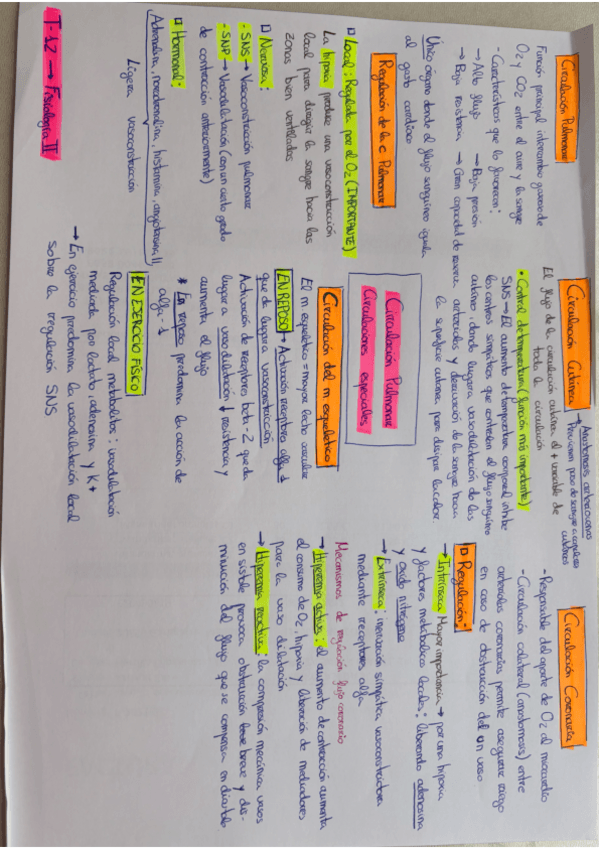 Circulación Pulmonar
Función principal intercambio gaseoso de
O2 y CO2 entre el aire y la sangre
- Características que la favorecen:
→ Alto flujo → Baja presión
→ Baja resistencia → Gran capacidad de reserva
Único órgano donde el flujo sanguíneo iguala
al gasto cardíaco
Regulación de la c Pulmonar
□ Local: Regulada por el O2 (IMPORTANTE)
La hipoxia produce una vasoconstricción
local para dirigir la sangre hacia las
zonas bien ventiladas
□ Nerviosa:
- SNS → Vasoconstricción pulmonar
- SNP → Vasodilatación (con un cierto grado
de contracción anteriormente)
□ Hormonal:
Adrenalina, noradrenalina, histamina, angiotensina II
Ligera vasoconstricción
T-12 → Fisiología II
Circulación Cutánea
→ Anastomosis arteriovenosas
→ Previenen paso de sangre a capilares
cutáneos
El flujo de la circulación cutánea el + variable de
toda la circulación
• Control de temperatura (función más importante)
SNS → El aumento de temperatura corporal inhibe
los centros simpáticos que controlan el flujo sanguíneo
cutáneo, dando lugar a vasodilatación de las
arteriolas y derivación de la sangre hacia
la superficie cutánea para disipar la calor
Circulación Pulmonar
Circulaciones especiales
Circulación del m esquelético
El m esquelético = mayor lecho vascular
EN REPOSO → Activación receptores alfa-1
que da lugar a vasoconstricción
Activación de receptores beta-2 que da
lugar a vasodilatación ↓ resistencia y
aumenta el flujo
* En reposo predomina la acción de
alfa-1
EN EJERCICIO FÍSICO
Regulación local metabolitos: vasodilatación
mediada por lactato, adenosina y K+
→ En ejercicio predomina la vasodilatación local
sobre la regulación SNS
Circulación Coronaria
- Responsable del aporte de O2 al miocardio
- Circulación colateral (anastomosis) entre
arterias coronarias permite asegurar riego
en caso de obstrucción del un vaso
□ Regulación:
→ Intrínseca Mayor importancia → por una hipoxia
y factores metabólicos locales: liberando adenosina
y óxido nitrógeno
→ Extrínseca: inervación simpática vasoconstrictora
mediante receptores alfa
Mecanismos de regulación flujo coronario
→ Hiperemia activa: el aumento de contracción aumenta
el consumo de O2, hipoxia y liberación de mediadores
para la vaso dilatación
→ Hiperemia reactiva: la compresión mecánica vasos
en sístole provoca obstrucción leve breve y dis-
minución del flujo que se compensa en diástole